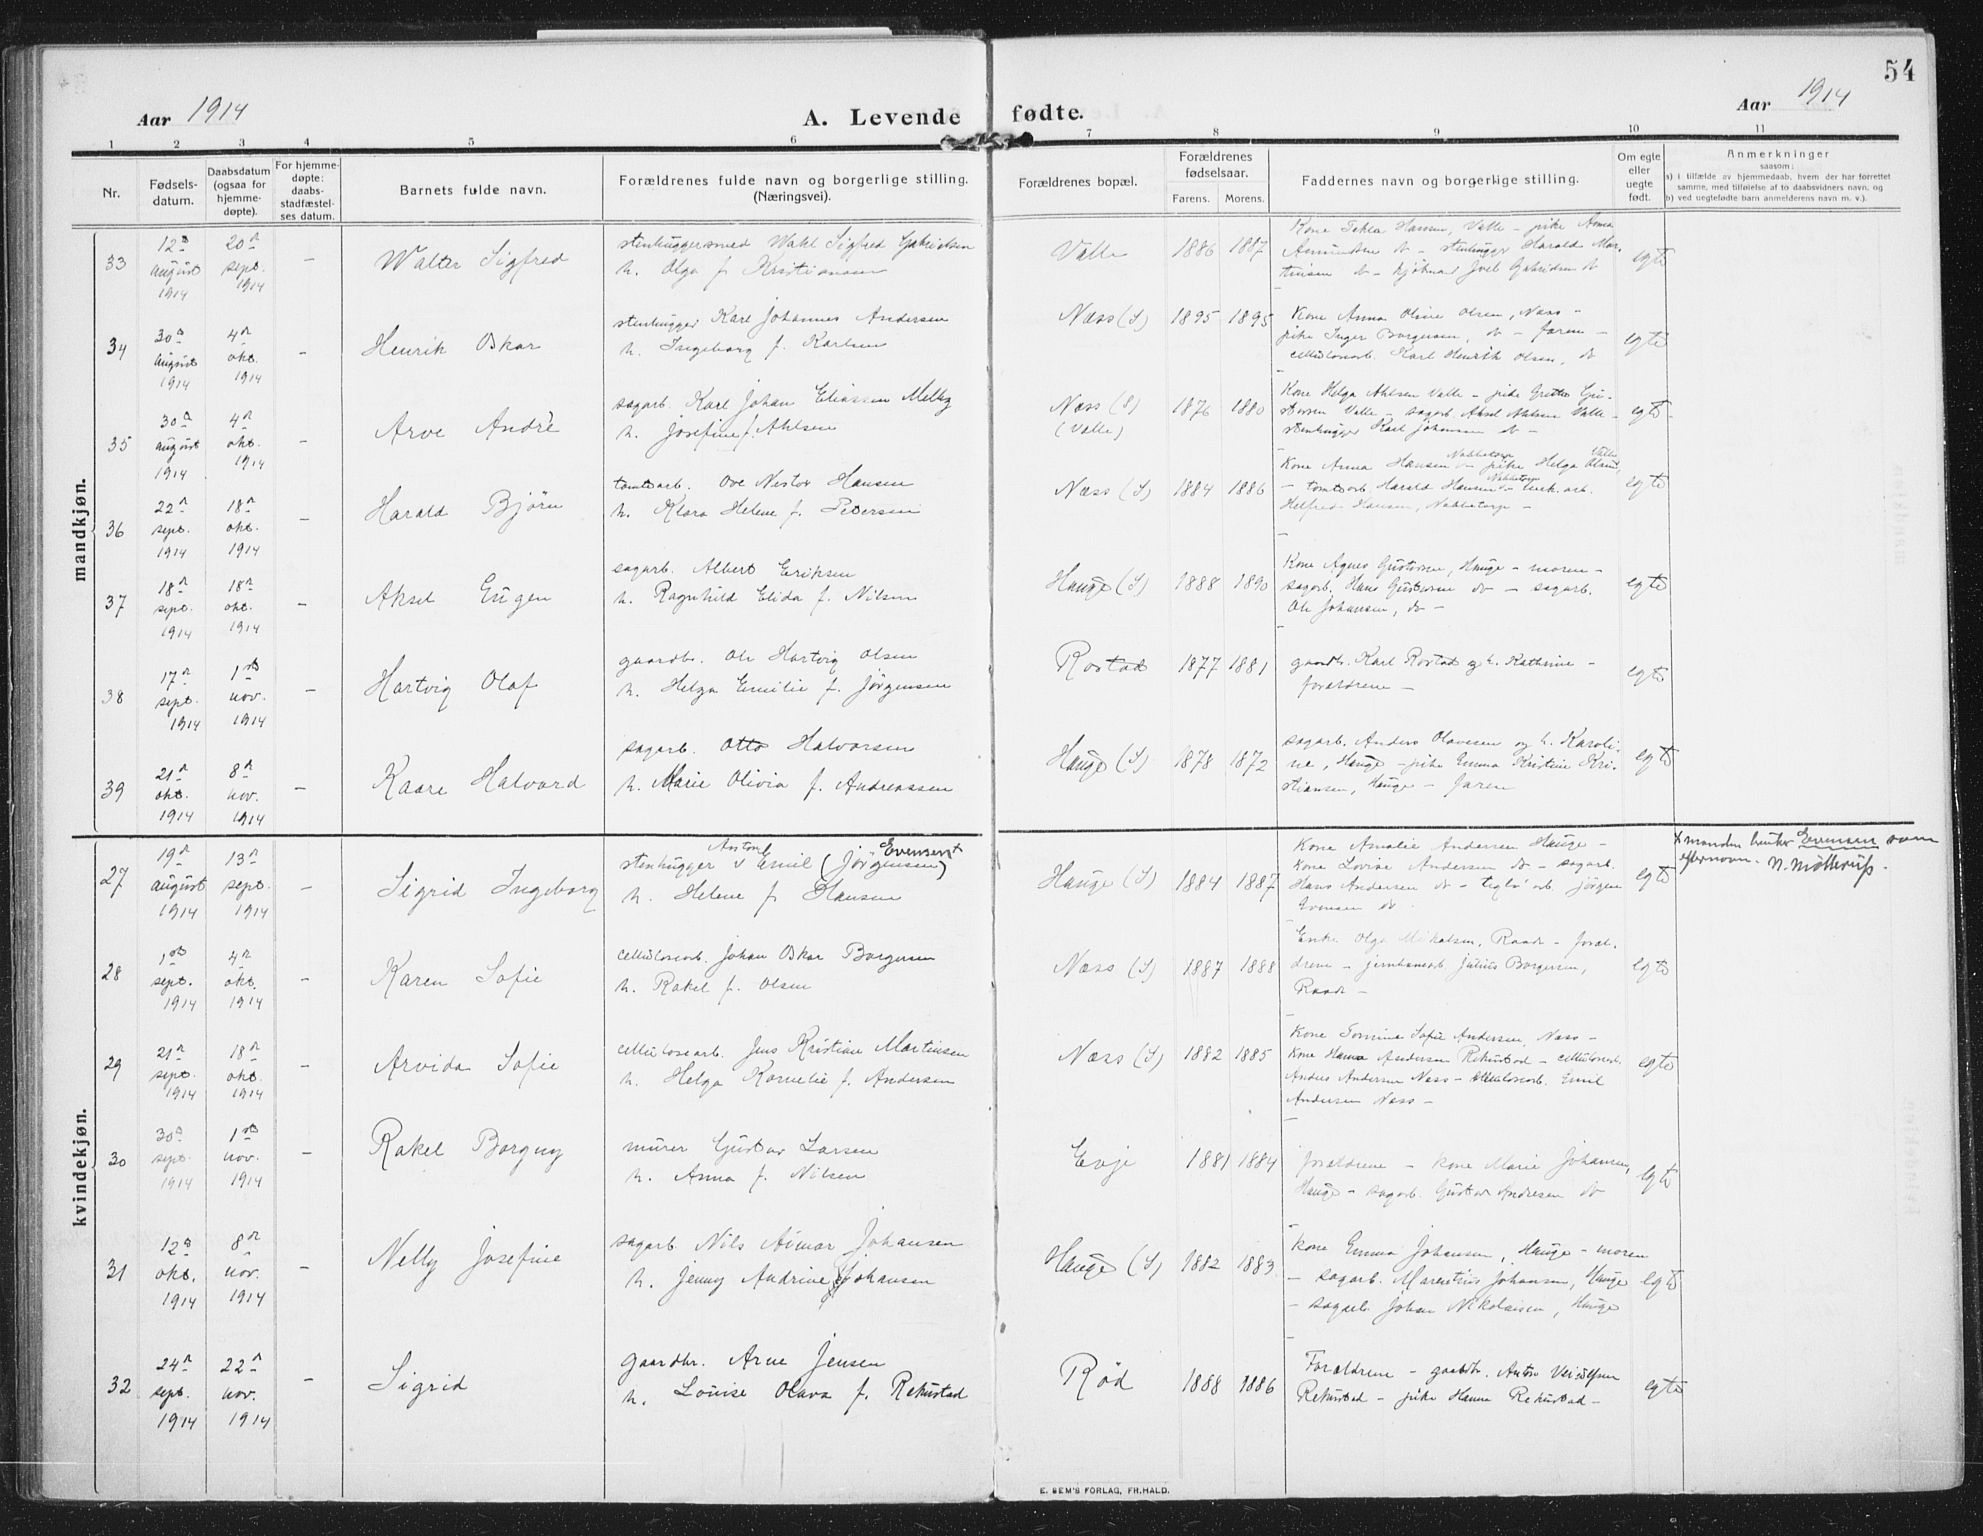 54
Aar 1914
A. Levende fødte.
Aar 1914
1 2 3 4 5 6 7 8 9 10 11
Nr.
Fødsels-
datum.
Daabsdatum
(ogsaa for
hjemme-
døpte).
For hjemme-
døpte:
daabs-
stadfæstel-
ses datum.
Barnets fulde navn.
Forældrenes fulde navn og borgerlige stilling.
(Næringsvei).
Forældrenes bopæl.
Forældrenes
fødselsaar.
Farens. Morens.
Faddernes navn og borgerlige stilling.
Om egte
eller
uegte
født.
Anmerkninger
saasom:
a) i tilfælde av hjemmedaab, hvem der har forrettet
samme, med tilføielse af to daabsvidners navn, og
b) ved uegtefødte barn anmelderens navn m. v.).
mandkjøn.
33
12te august 1914
20de sept. 1914
–
Walter Sigfred
stenhuggersmed Wahl Sigfred Gabrielsen
h. Olga f. Kristiansen
Valle
1886 1887
Kone Tekla Hansen, Valle – pike Anna
Amundsen do – stenhugger Harald Mar-
tinsen do – Gabrielsen do
egte
34
30te august 1914
4de okt. 1914
–
Henrik Oskar
stenhugger Karl Johannes Andersen
h. Ingeborg f. Karlsen
Næss (S)
1895 1895
Kone Anna Oline Olsen, Næss –
pike Inger Borgersen, do – faren –
cellulosearb. Karl Henrik Olsen, do
egte
35
30te august 1914
4de okt. 1914
–
Arve Andrè
sagarb. Karl Johan Eliassen Melby
h. Josefine f. Ahlsen
Næss (S)
(Valle)
1876 1880
Kone Helga Ahlsen Valle – pike Grethe Gu-
stavsen Valle – sagarb. Aksel Ahlsen Valle –
stenhugger Karl Johansen do –
egte
36
22de sept. 1914
18de okt. 1914
–
Harald Bjørn
tomtearb. Ove Nestor Hansen
h. Klara Helene f. Pedersen
Næss (S)
1884 1886
Kone Anna Hansen Nabbetorp – pike Helga Valle
– tomtearb. Harald Hansen Nabbetorp – arb.
Helfred Hansen, Nabbetorp –
egte
37
18de sept. 1914
18de okt. 1914
–
Aksel Eugen
sagarb. Albert Eriksen
h. Ragnhild Elida f. Nilsen
Hauge (S)
1888 1890
Kone Agnes Gustavsen, Hauge – moren –
sagarb. Hans Gustavsen do – sagarb.
Ole Johansen, do –
egte
38
17de sept. 1914
1ste nov. 1914
–
Hartvig Olaf
gaardbr. Ole Hartvig Olsen
h. Helga Emilie f. Jørgensen
Rostad
1877 1881
gaardbr. Karl Rostad og h. Kathrine –
forældrene –
egte
39
21de okt. 1914
8de nov. 1914
–
Kaare Halvard
sagarb. Otto Halvorsen
h. Marie Olivia f. Andreassen
Hauge (S)
1878 1872
sagarb. Anders Olavesen og h. Karoli-
ne, Hauge – pike Emma Kristine Kri-
stiansen, Hauge – faren
egte
kvindekjøn.
27
19de august 1914
13de sept. 1914
–
Sigrid Ingeborg
Anton Evensen +
stenhugger v Emil (Jørgensen)
h. Helene f. Hansen
Hauge (S)
1884 1887
Kone Amalie Andersen Hauge –
Kone Lovise Andersen do – sagarb.
Hans Andersen do – teglv. arb. Jørgen
Evensen do.
egte
+ manden bruker Evensen som
efternavn. N. Møllerup.
28
1ste sept. 1914
4de okt. 1914
–
Karen Sofie
cellulosearb. Johan Oskar Borgersen
h. Rakel f. Olsen
Næss (S)
1887 1888
Enke Olga Mikalsen, Raade – foræl-
drene – jernbanearb. Julius Borgersen,
Raade –
egte
29
21de sept. 1914
18de okt. 1914
–
Arvida Sofie
cellulosearb. Jens Kristian Martinsen
h. Helga Kornelie f. Andersen
Næss (S)
1882 1885
Kone Tomine Sofie Andersen, Næss –
Kone Hanna Andersen Rekustad – cellulosearb.
Anders Andersen Næss – cellulosearb. Emil
Andersen Næss –
egte
30
30te sept. 1914
1ste nov. 1914
–
Rakel Borgny
murer Gustav Larsen
h. Anna f. Nilsen
Evje
1881 1884
forældrene – kone Marie Johansen,
Hauge – sagarb. Gustav Andresen do
egte
31
12te okt. 1914
8de nov. 1914
–
Nelly Josefine
sagarb. Nils Aimar Johansen
h. Jenny Andrine f. Johansen
Hauge (S)
1882 1883
Kone Emma Johansen, Hauge – moren
– sagarb. Marentius Johansen, Hauge
– sagarb. Johan Nikolaisen, Hauge
egte
32
24de sept. 1914
22de nov. 1914
–
Sigrid
gaardbr. Arne Jensen
h. Louise Olava f. Rekustad
Rød
1888 1886
Forældrene – gaardbr. Anton
Rekustad – pike Hanna Rekustad –
egte
E. SEM'S FORLAG, FR.HALD.